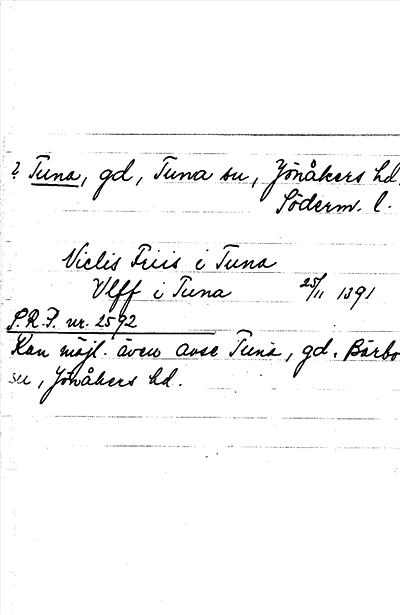 ? Tuna, gd, Tuna sn, Jönåkers hd.
Söderm. l.
Niclis Friis i Tuna
Vlff i Tuna 25/11 1391
S.R.P. nr. 2592
Kan möjl. även avse Tuna, gd. Bärbo
sn, Jönåkers hd.